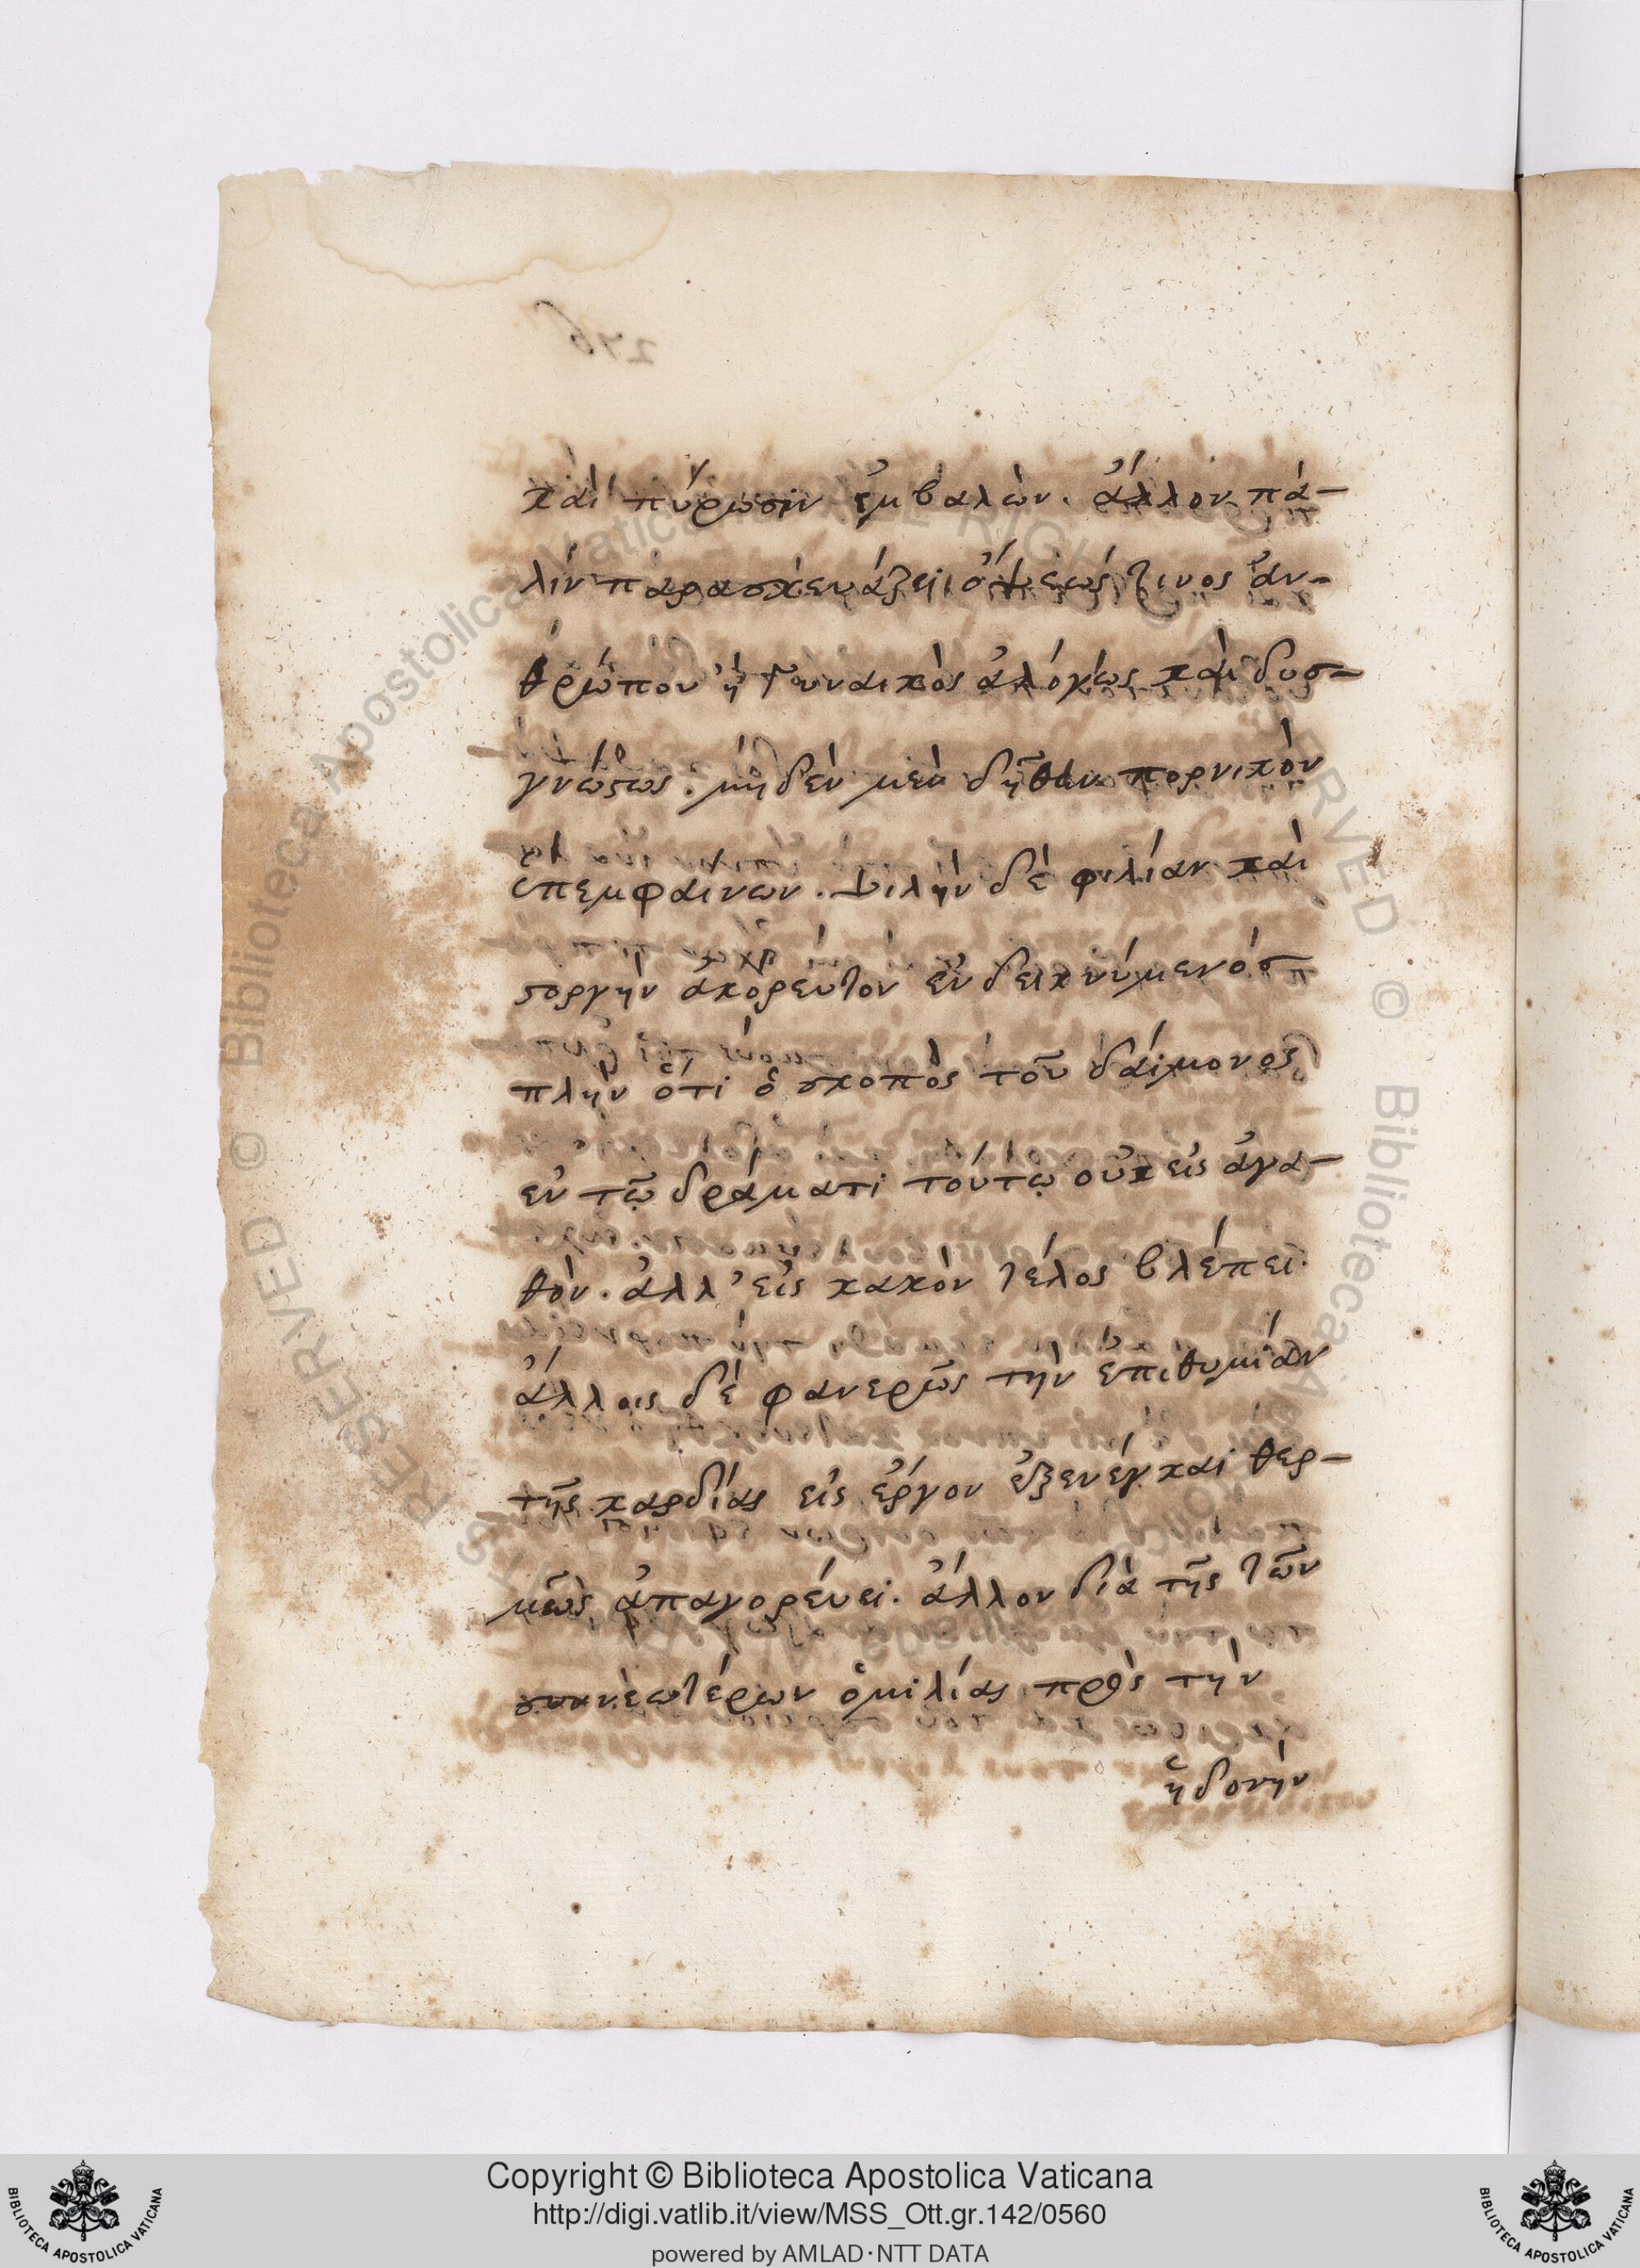 καὶ πύρωσιν ἐμβαλὼν. ἄλλον πά-
λιν παρασκευάζει ὄψεώς τινος ἀν-
θρώπου ἢ γυναικὸς ἀλόγως καὶ δυσ-
γνώστως. μηδὲν μὲν δῆθεν πορνικὸν
ὑπεμφαίνων. ψιλὴν δὲ φιλίαν καὶ
στοργὴν ἀκόρευτον ἐνδεικνύμενος
πλὴν ὅτι ὁ σκοπὸς τοῦ δαίμονος
ἐν τῷ δράματι τούτῳ οὐκ εἰς ἀγα-
θὸν. ἀλλ' εἰς κακὸν τέλος βλέπει.
ἄλλοις δὲ φανερῶς τὴν ἐπιθυμίαν
τῆς καρδίας εἰς ἔργον ἐξενέγκαι θερ-
μῶς ἀπαγορεύει. ἄλλον διὰ τῆς τῶν
νεωτέρων ὁμιλίας πρὸς τὴν
ἡδονὴν
Copyright © Biblioteca Apostolica Vaticana
http://digi.vatlib.it/view/MSS_Ott.gr.142/0560
powered by AMLAD·NTT DATA
BIBLIOTECA APOSTOLICA VATICANA
BIBLIOTECA APOSTOLICA VATICANA